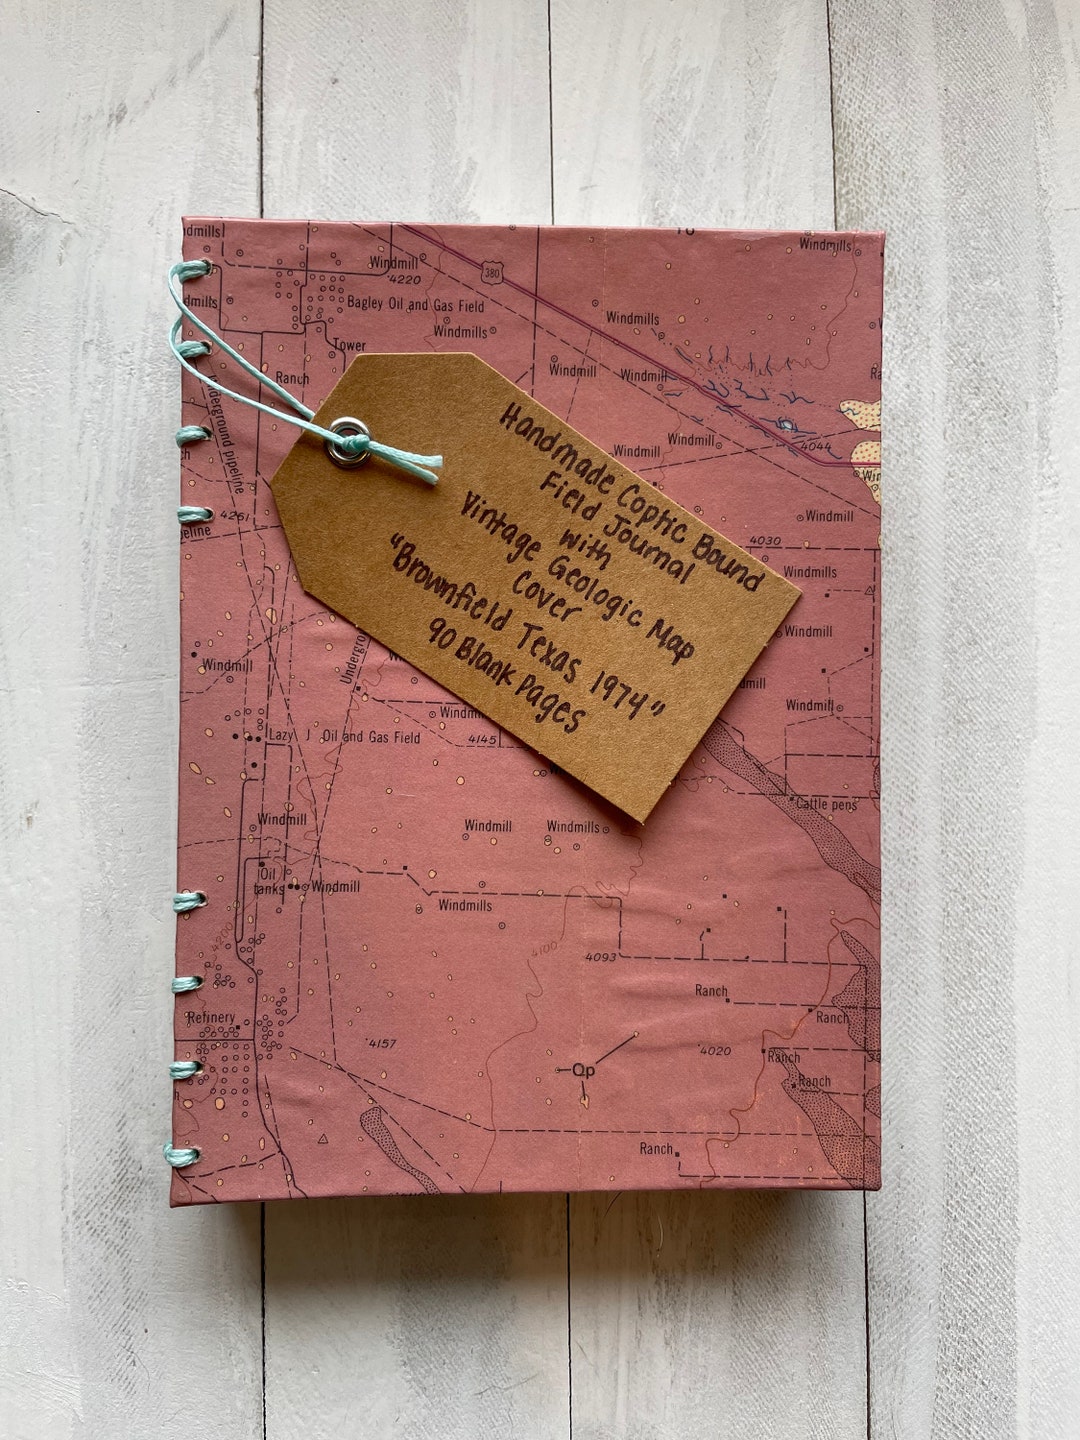 Windmills
Windmill
380
4220
Bagley Oil and Gas Field
Windmills
Windmills
Tower
Windmill
Windmill
Ranch
Handmade Coptic Bound
Field Journal
with
Vintage Geologic Map
Cover
"Brownfield Texas 1974"
90 Blank Pages
Windmill
Windmill
4044
Underground pipeline
4251
Windmill
4030
Windmills
Windmill
Windmill
Windmill
4145
Lazy J Oil and Gas Field
Cattle pens
Windmill
Windmill
Windmills
Oil
tanks
Windmill
Windmills
4200
4100
4093
Ranch
Refinery
Ranch
4157
4020
Ranch
Qp
Ranch
Ranch